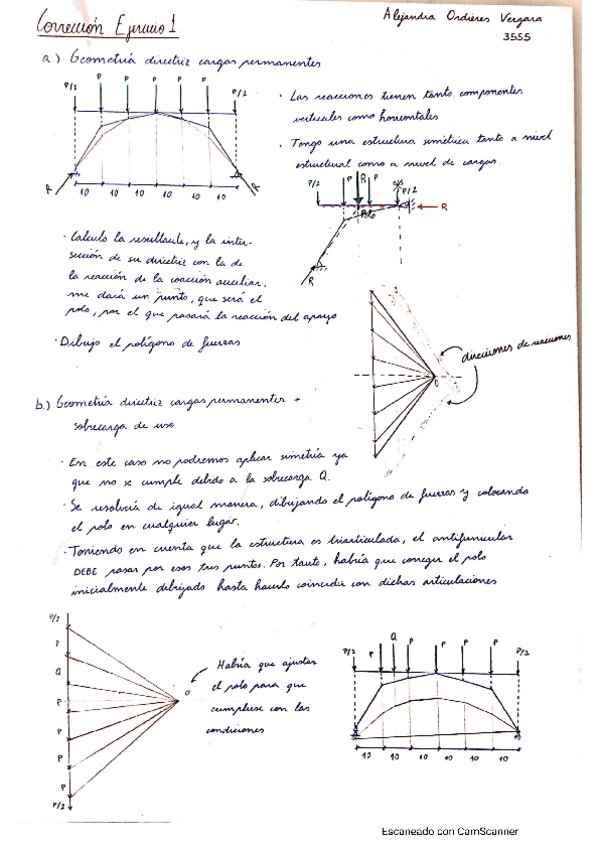 Corrección Ejercicio 1
Alejandra Ordieres Vergara
3555
a.) Geometría directriz cargas permanentes
P/2 P P P P P P/2
· Las reacciones tienen tanto componentes
verticales como horizontales
· Tengo una estructura simétrica tanto a nivel
estructural como a nivel de cargas.
R R
10 10 10 10 10 10
P/2 P R P P/2
Polo
R
R
· Calculo la resultante, y la inter-
sección de su directriz con la de
la reacción de la coacción auxiliar,
me dará un punto, que será el
polo, por el que pasará la reacción del apoyo
· Dibujo el polígono de fuerzas
direcciones de reacciones
O
b.) Geometría directriz cargas permanentes +
sobrecarga de uso
· En este caso no podremos aplicar simetría ya
que no se cumple debido a la sobrecarga Q.
· Se resolvería de igual manera, dibujando el polígono de fuerzas y colocando
el polo en cualquier lugar.
· Teniendo en cuenta que la estructura es triarticulada, el antifunicular
DEBE pasar por esos tres puntos. Por tanto, habría que corregir el polo
inicialmente dibujado hasta hacerlo coincidir con dichas articulaciones
P/2
P
Q
P
P
P
P
P/2
O
Habría que ajustar
el polo para que
cumpliese con las
condiciones
P/2 P Q P P P P P/2
10 10 10 10 10 10
Escaneado con CamScanner